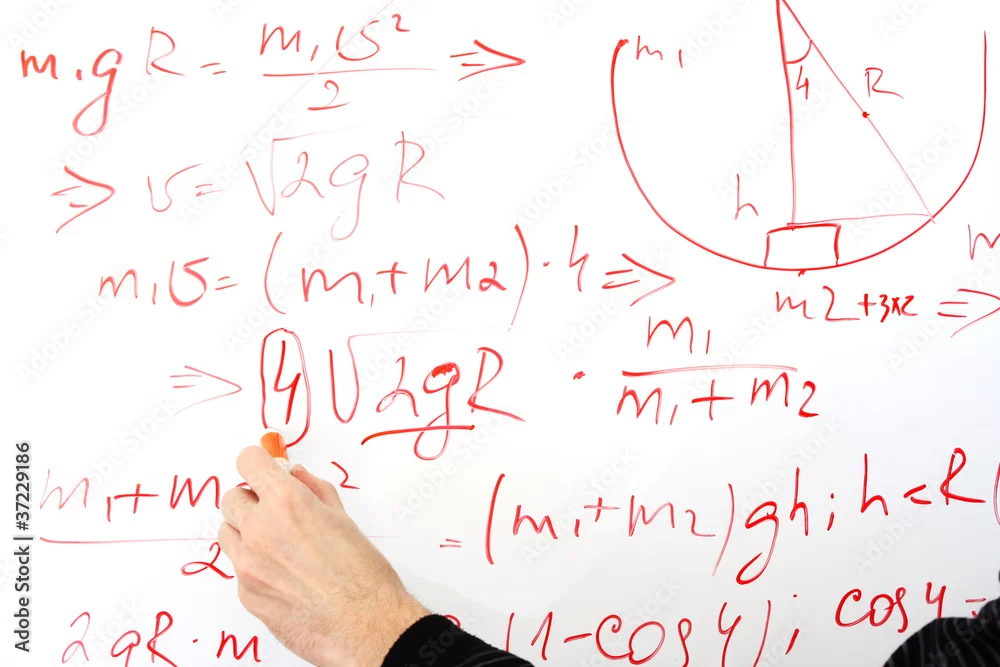 m₁gR = m₁υ²/2 ⇒
⇒ υ = √2gR
m₁υ = (m₁+m2)·4 ⇒
⇒ 4 √2gR · m₁/(m₁+m2)
m₁+m 2
2
= (m₁+m2)gh; h < R
2gR·m (1-cos4); cos4 =
m₁
4
R
h
m2+3x2 ⇒
m
Adobe Stock | #37229186
Adobe Stock